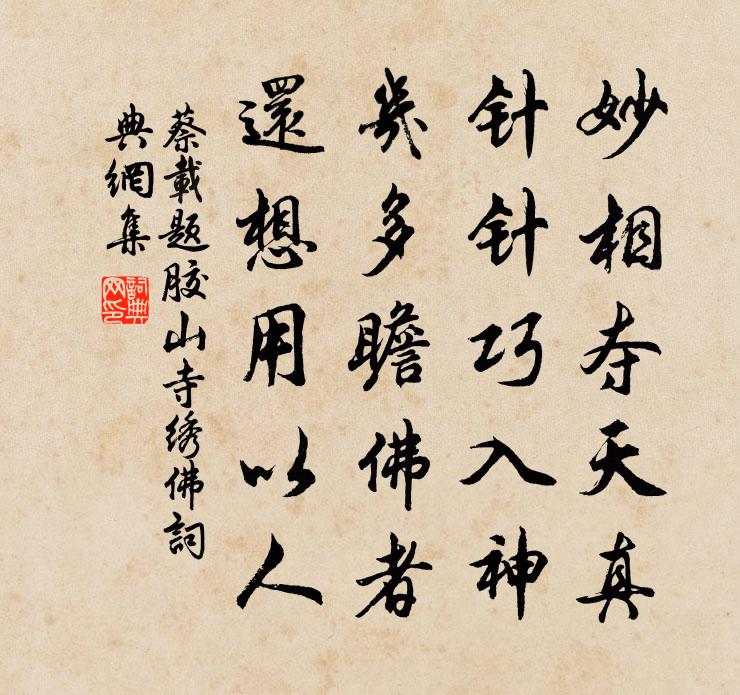 妙相夺天真
针针巧入神
幾多瞻佛者
還想用以人
蔡載題胶山寺绣佛詞
典網集
詞典网印